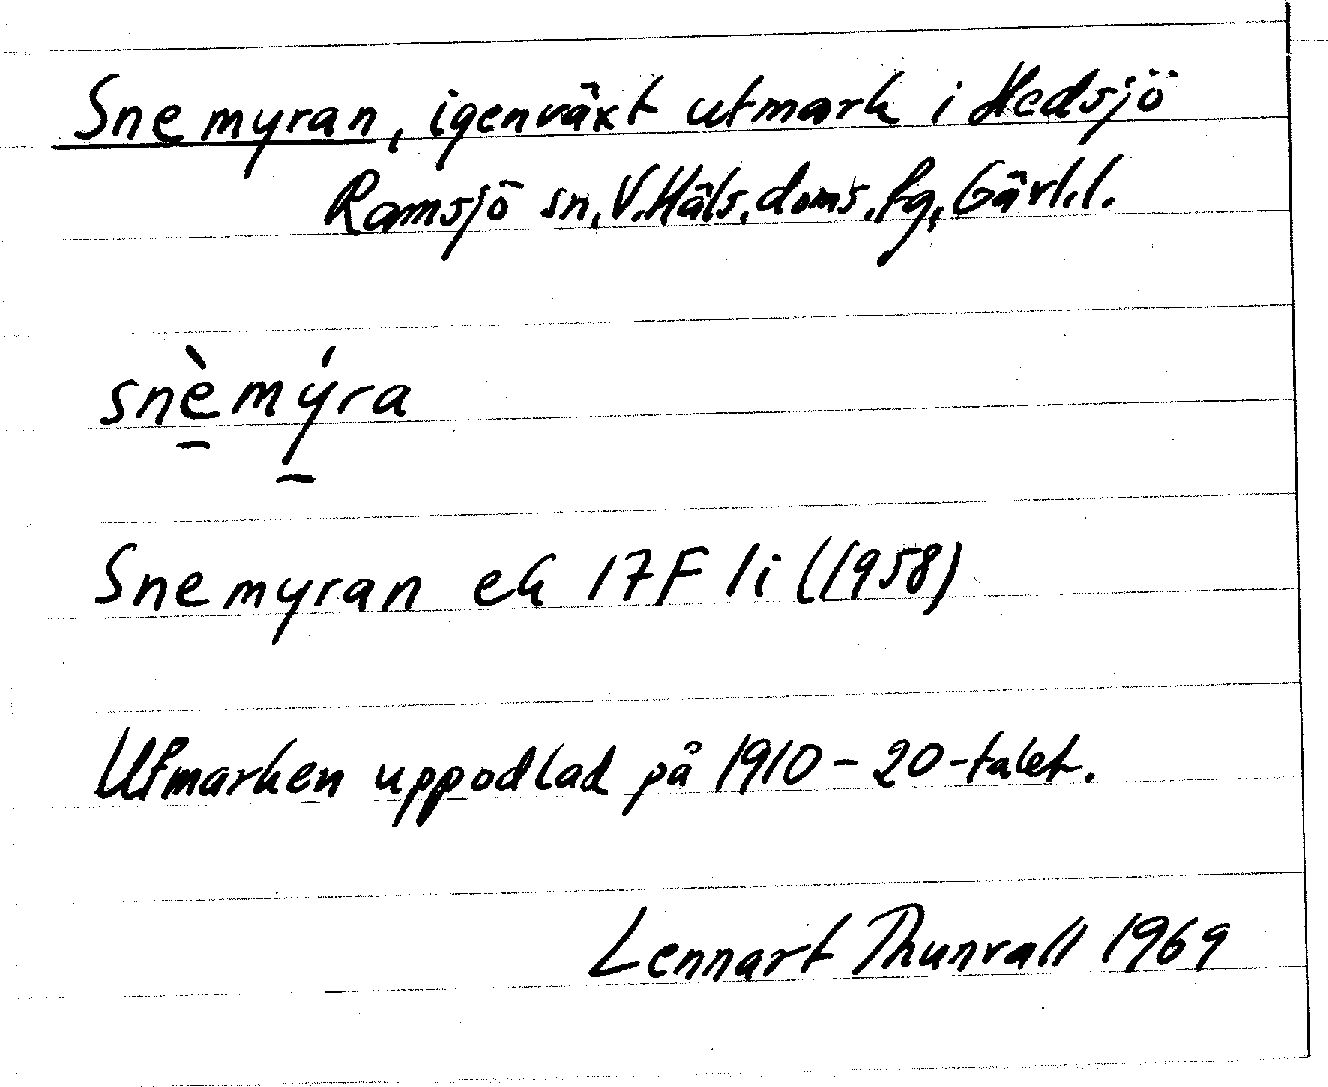 Snemyran, igenväxt utmark i Hedsjö
Ramsjö sn, V. Häls. doms. fg, Gävl. l.
snè̱mý̱ra
Snemyran ek 17F 1i (1958)
Utmarken uppodlad på 1910-20-talet.
Lennart Thunvall 1969